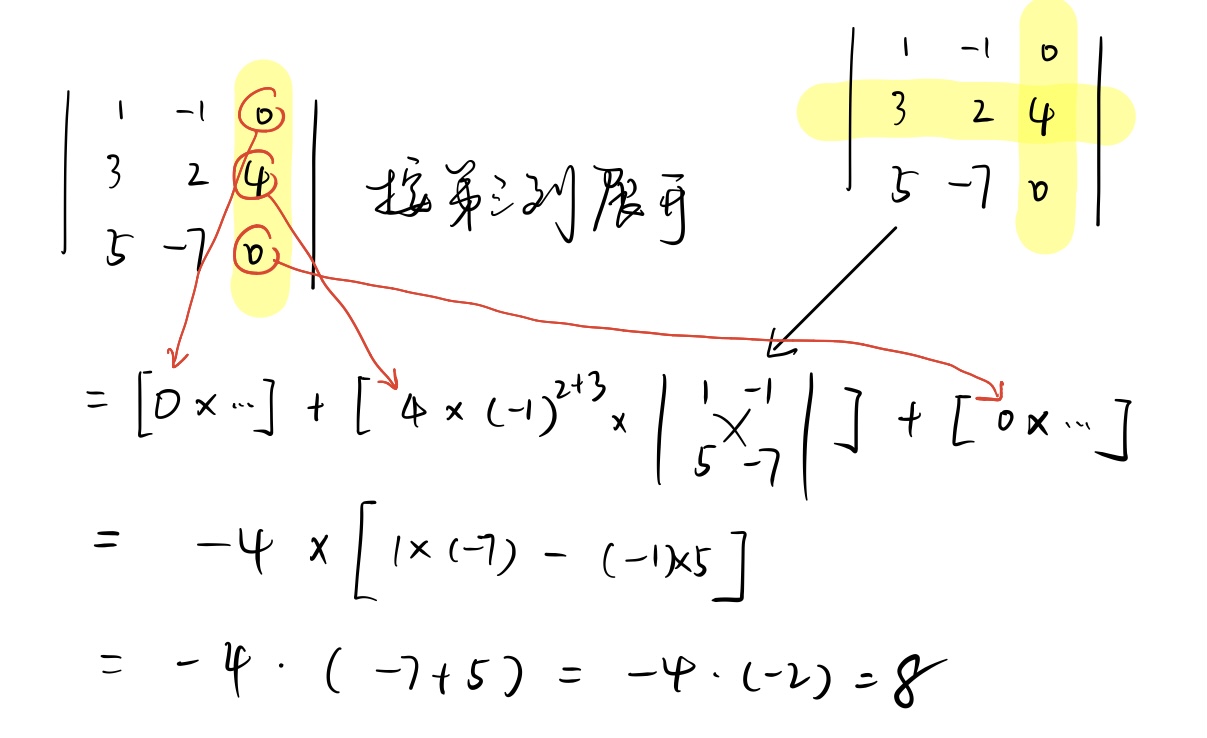 | 1 -1 0 |
| 3 2 4 |
| 5 -7 0 |
按第三列展开
| 1 -1 0 |
| 3 2 4 |
| 5 -7 0 |
= [0 × …] + [4 × (-1)^{2+3} × | 1 -1 |
| 5 -7 | ] + [0 × …]
= -4 × [1 × (-7) - (-1)×5]
= -4 · (-7+5) = -4 · (-2) = 8